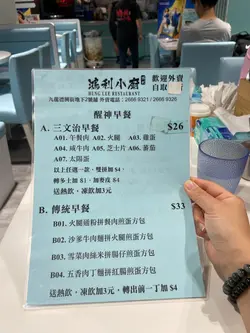 鴻利小廚
HUNG LEE RESTAURANT
歡迎外賣
自取
醒神早餐
A. 三文治早餐 $26
A01. 午餐肉 A02. 火腿 A03. 雞蛋
A04. 咸牛肉 A05. 芝士片 A06. 番茄
A07. 太陽蛋
以上任選一款，雙拼加 $4
轉多士加 $1，加青瓜 $4
送熱飲，凍飲加3元
B. 傳統早餐 $33
B01. 火腿通粉拼餐肉煎蛋方包
B02. 沙爹牛肉麵拼火腿煎蛋方包
B03. 雪菜肉絲米拼腸仔煎蛋方包
B04. 五香肉丁麵拼紅腸煎蛋方包
送熱飲，凍飲加3元，轉出前一丁加 $4